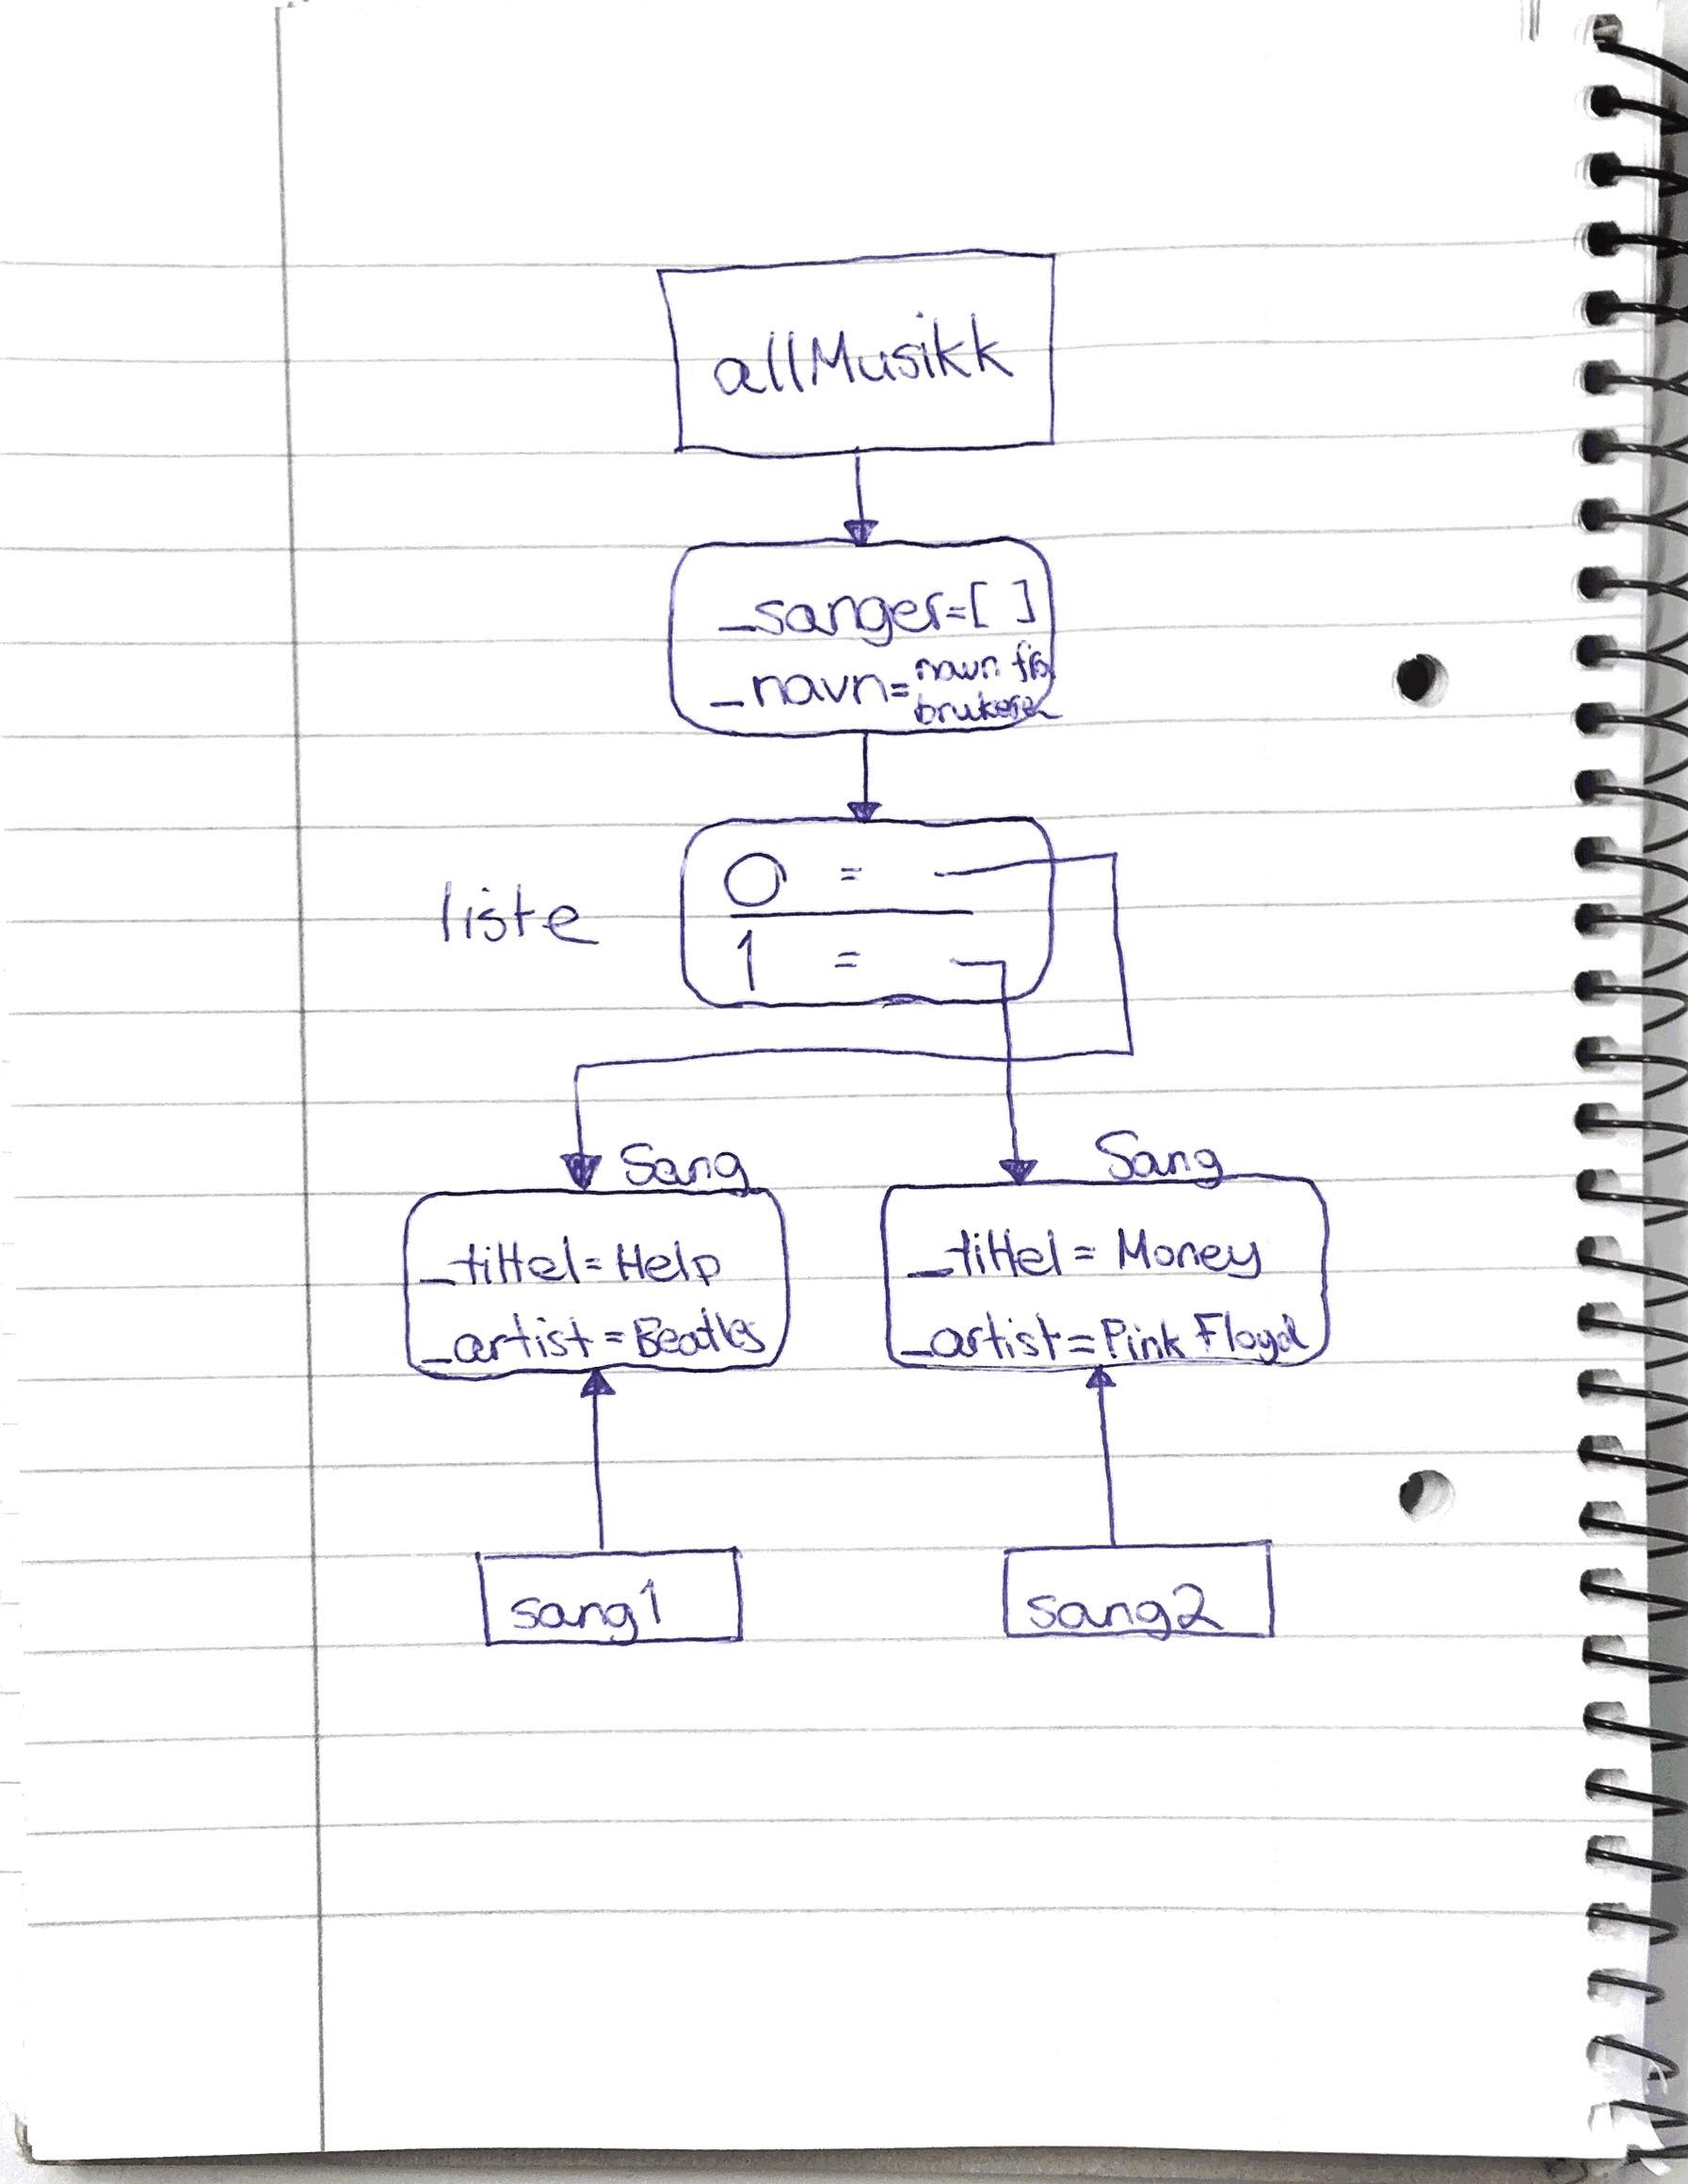 allMusikk
_sanger=[ ]
_navn=navn fra
brukeren
liste
0 =
1 =
Sang
_tittel=Help
_artist=Beatles
Sang
_tittel = Money
_artist=Pink Floyd
sang1
sang2